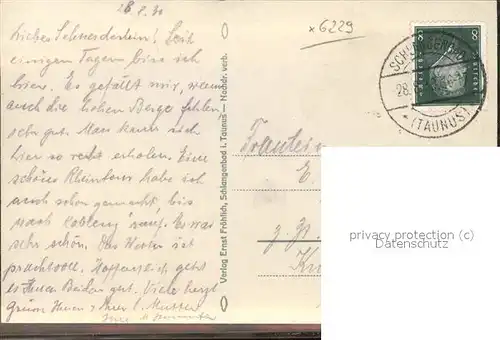 28.7.30
Liebes Schwesterlein! Seit
einigen Tagen bin ich
hier. Es gefällt mir, wenn
auch die hohen Berge fehlen
sehr gut. Man kann sich
hier so recht erholen. Eine
schöne Rheintour habe ich
auch schon gemacht, bis
nach Coblenz rauf. Es war
sehr schön. Das Wetter ist
prachtvoll. Hoffentlich geht
es Ihnen Beiden gut. Viele herzl
Grüsse Ihnen u Ihrer l. Mutter
Ihre
Verlag Ernst Fröhlich, Schlangenbad i. Taunus — Nachdr. verb.
x6229
8 8
SCHLANGENBAD
28.
* (TAUNUS)
Fräulein
E
z. Zt.
privacy protection (c)
Datenschutz